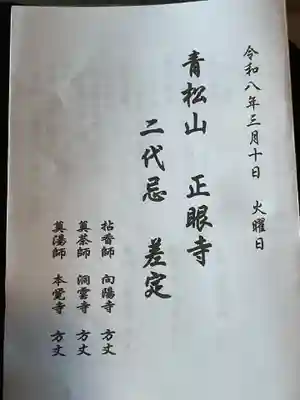 令和八年三月十日　火曜日
青松山　正眼寺
二代忌　差定
拈香師　向陽寺　方丈
奠茶師　洞雲寺　方丈
奠湯師　本覚寺　方丈